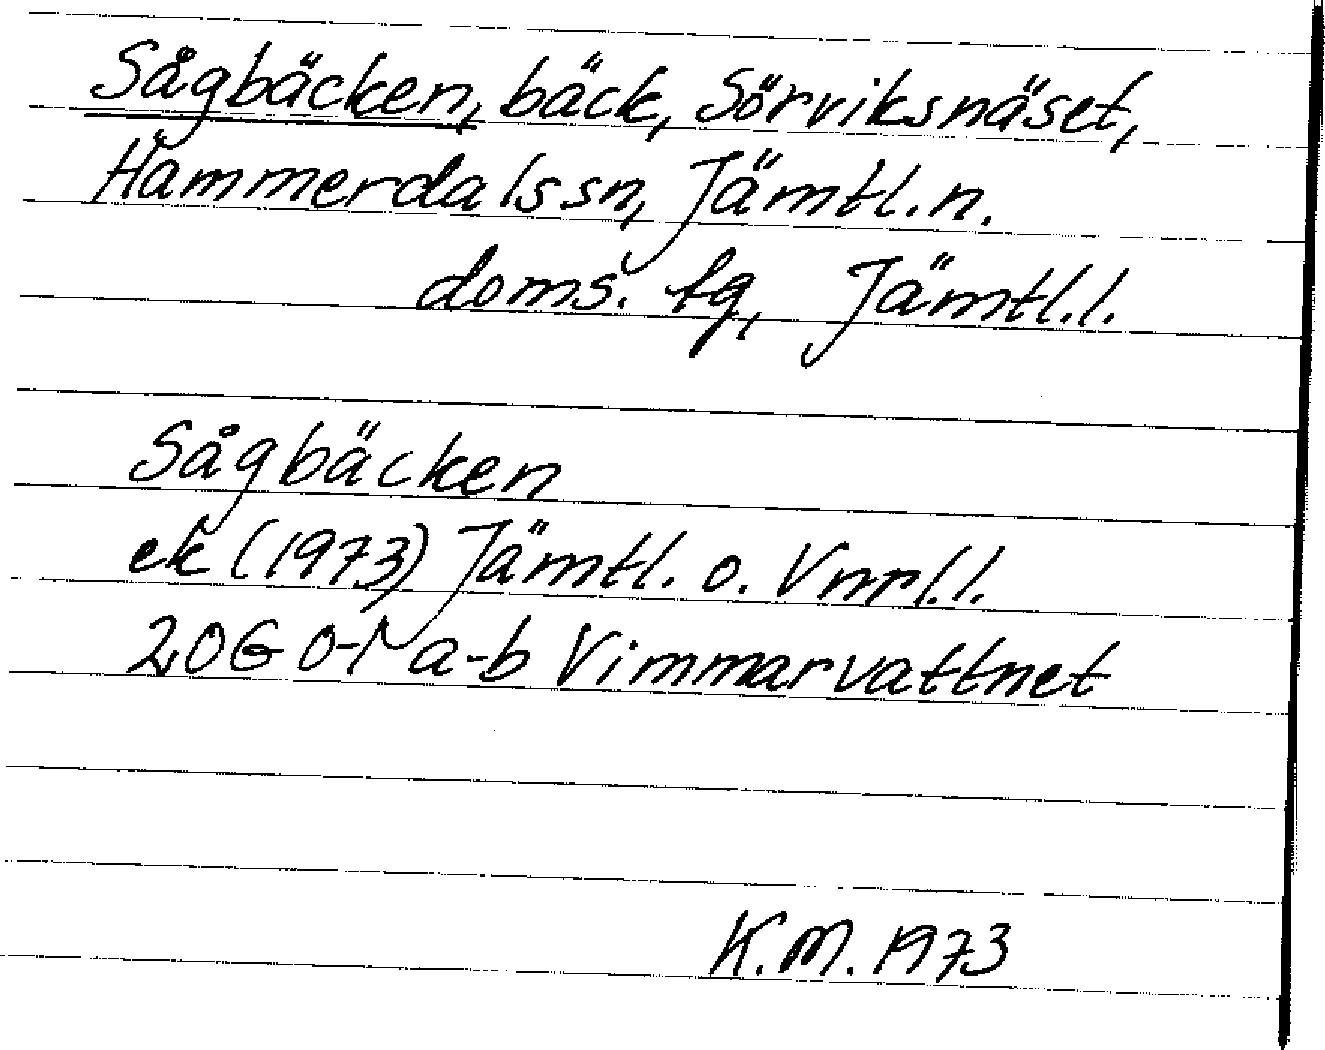 Sågbäcken, bäck, Sörviksnäset,
Hammerdalssn, Jämtl.n.
doms. fg, Jämtl.l.
Sågbäcken
ek (1973) Jämtl. o. Vnrl.l.
20G 0-1 a-b Vimmarvattnet
K.M. 1973